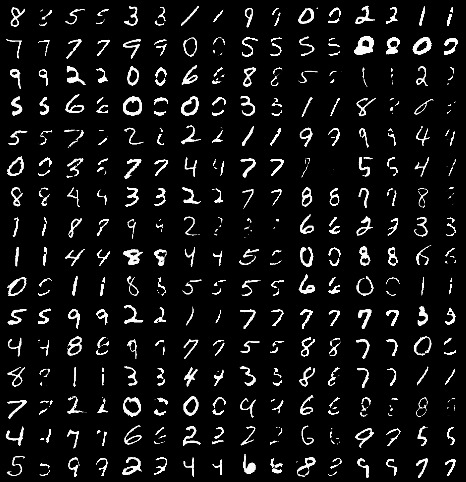 8 3 5 5 3 3 1 1 9 9 0 0 2 2 1 1
7 7 7 7 9 9 0 0 5 5 5 5 8 8 0 0
9 9 2 2 0 0 6 6 8 8 5 5 1 1 2 2
5 5 6 6 0 0 0 0 3 3 1 1 8 6
5 5 7 2 2 2 2 1 1 9 9 9 9 4 4
0 0 3 3 7 7 4 4 7 7 5 5 4 4
8 8 4 4 3 3 2 2 7 7 8 8 9 9 8
1 1 8 8 9 9 2 6 6 2 2 3 3
1 1 4 4 8 8 4 4 5 5 0 0 8 8 6 6
0 0 1 1 8 8 5 5 5 5 6 6 0 0 1 1
5 5 9 9 2 2 1 1 7 7 7 7 7 7 3 3
4 4 8 8 9 9 7 7 5 5 8 8 7 7 0 0
8 1 1 3 3 4 4 3 3 8 8 7 7 1 1
7 7 2 2 0 0 0 0 9 9 6 6 8 8 8 8
4 4 7 7 6 6 2 2 2 2 6 6 9 7 5 5
5 5 9 9 2 2 4 4 6 6 8 3 9 9 7 7